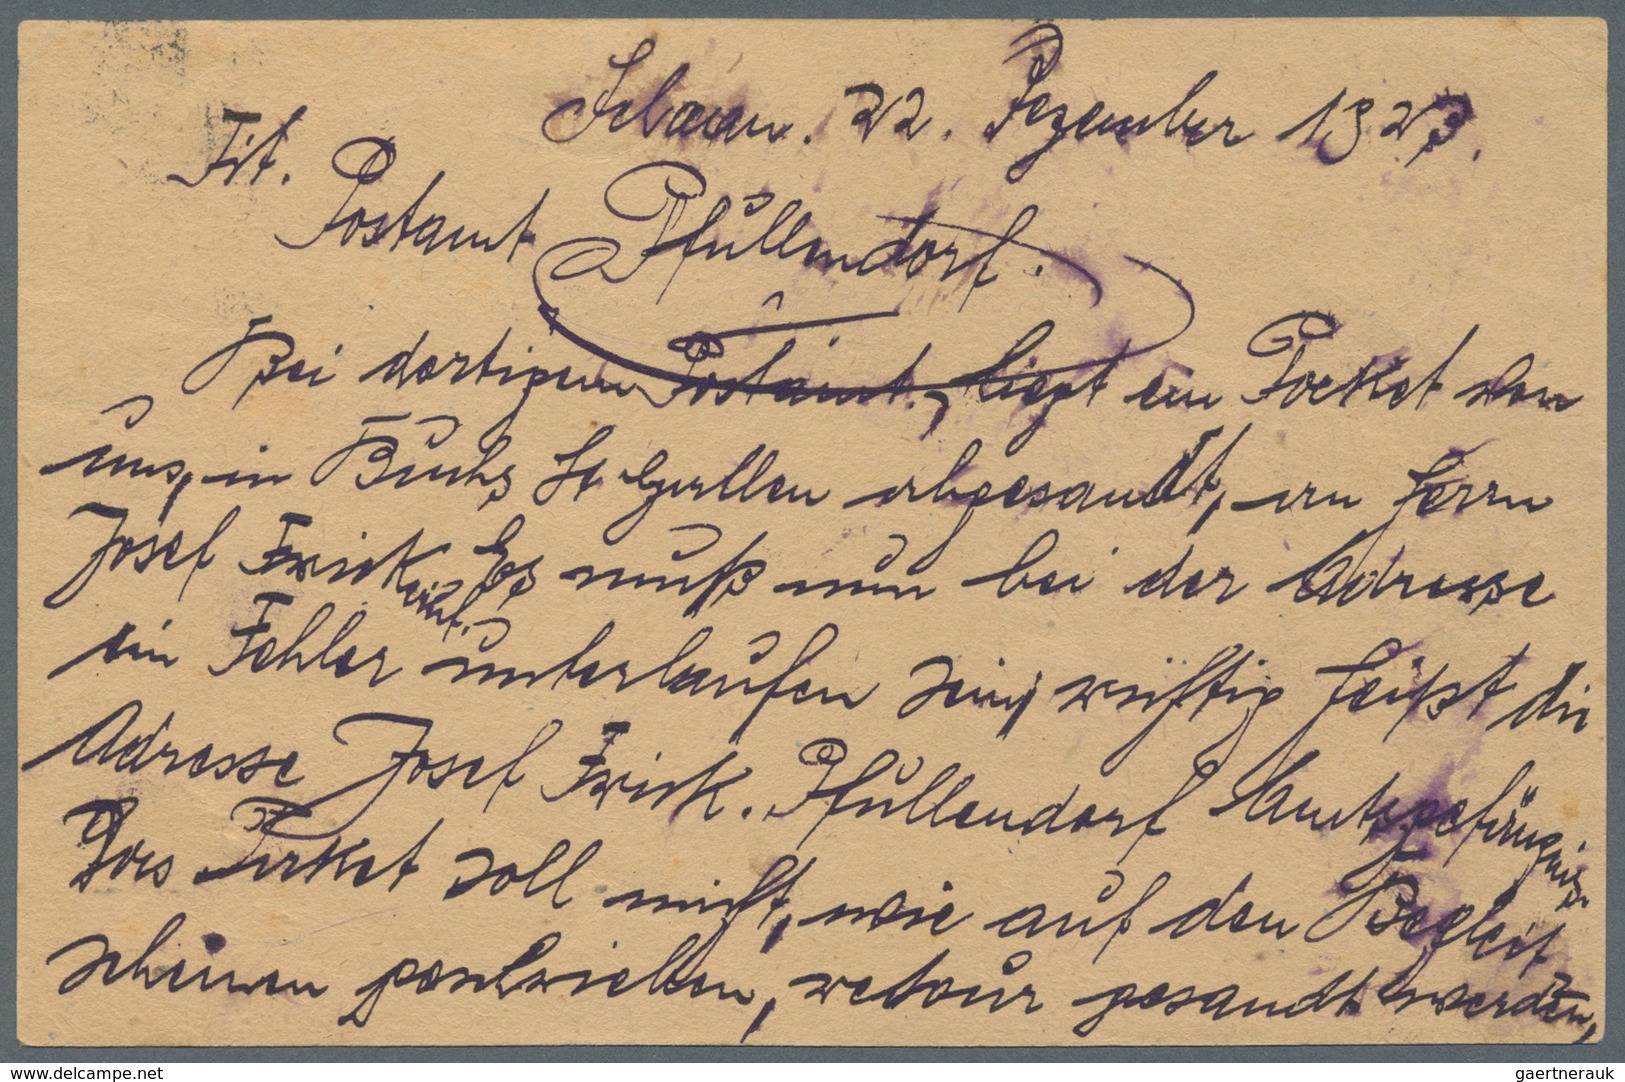 Schaan. 22. Dezember 1923.
Tit.
Postamt Pfullendorf.
Bei dortigem Postamt, liegt ein Packet von
uns, in Buchs St Gallen abgesandt, an Herrn
Josef Frick. Es muß nun bei der Adresse
ein Fehler unterlaufen sein, richtig heißt die
Adresse Josef Frick. Pfullendorf Amtsgefängnis.
Das Paket soll nicht, wie auf den Begleit
scheinen geschrieben, retour gesandt werden,
www.delcampe.net
gaertnerauk